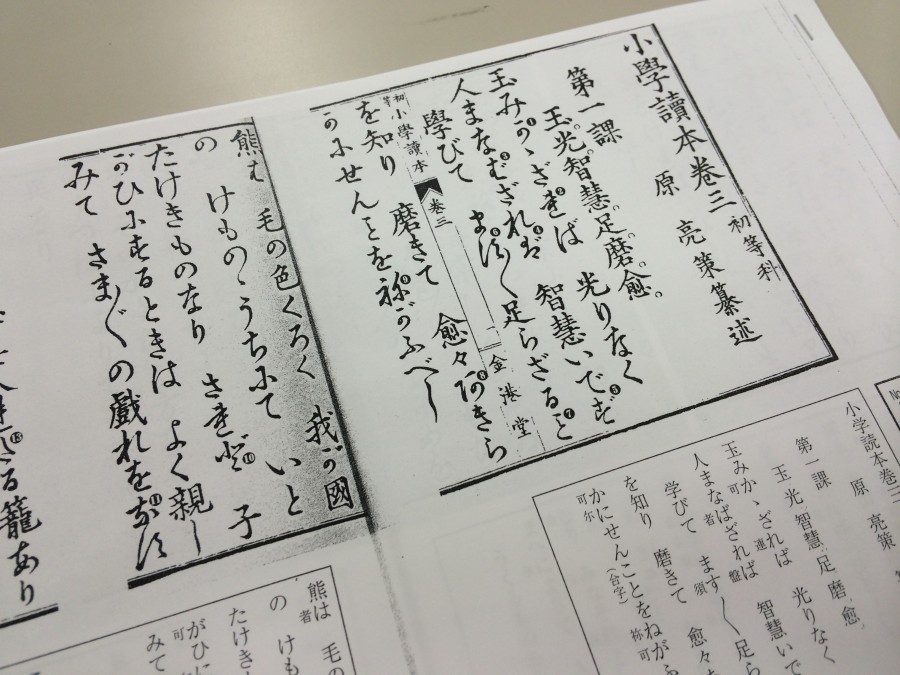 小學讀本巻三 初等科
原 亮策纂述
第一課
玉光智慧足磨愈
玉みがゝざれば 光りなく
人まなばざれば 智慧いでず
學びて ます〱足らざること
を知り 磨きて 愈々あきら
初等小學讀本 巻三 一 金港堂
かにせんことをねがふべし
熊は 毛の色くろく 我が國
の けものゝうちにて いと
たけきものなり されど 子
がひにするときは よく親し
みて さま〲の戯れをなす
る籠あり
No
小学読本巻三
原 亮策
第一課
玉 光 智慧 足 磨 愈
玉みかゝざれば 光りなく
可 連
人まなばざれば 智慧いで
者 盤
学びて ます〱足ら
須
を知り 磨きて 愈々
かにせんことをねがふ
可尓 (合字) 祢可
熊は 毛の
者
の けも
たけき
がひに
可
みて